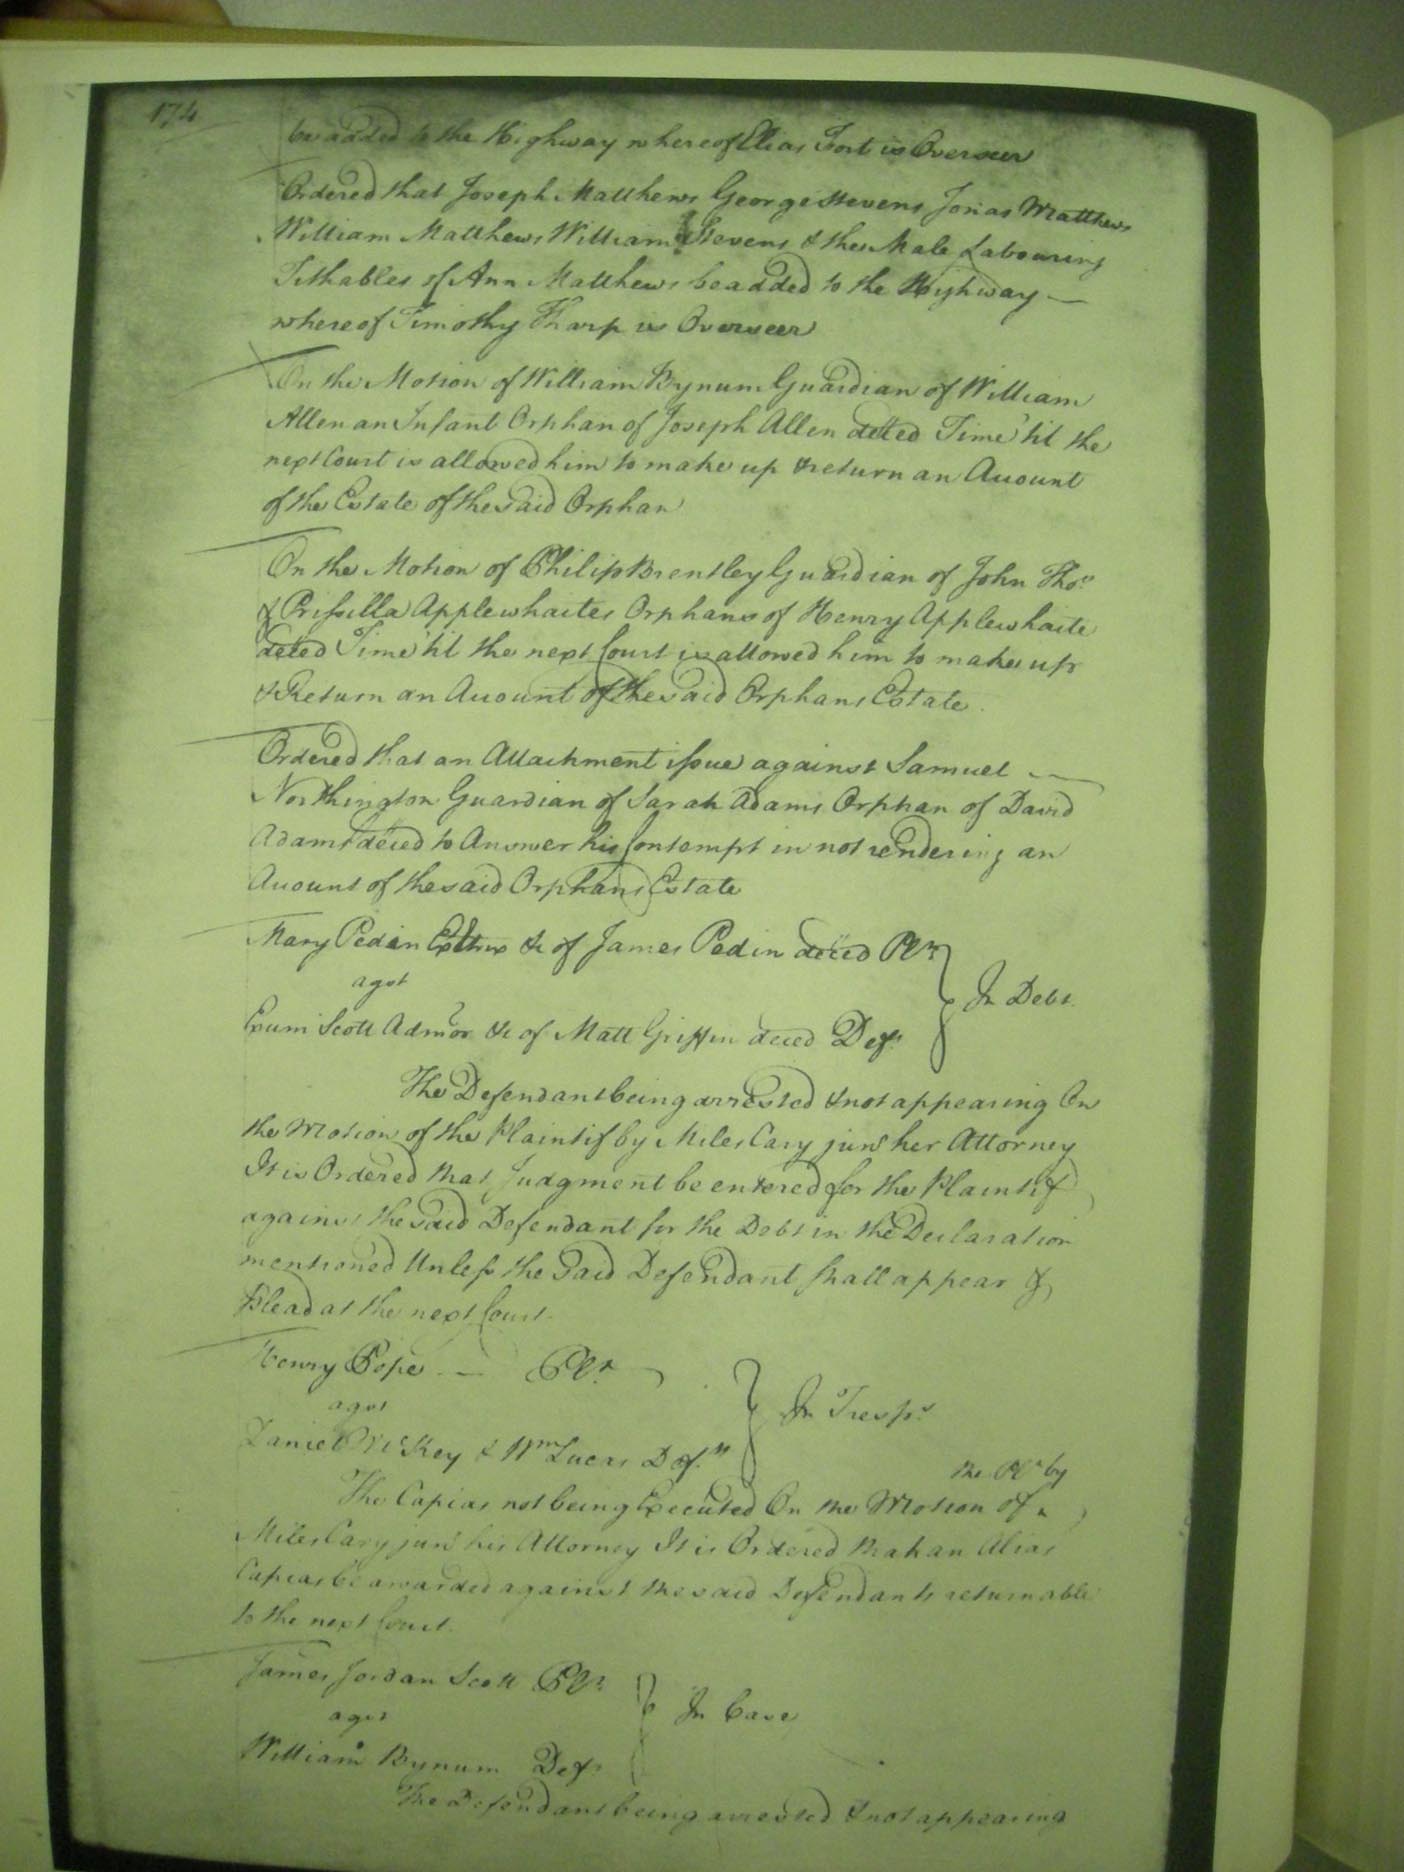 174
be added to the Highway whereof Elias Fort is Overseer
Ordered that Joseph Matthews George Stevens Jonas Matthews
William Matthews William Stevens & the Male Labouring
Tithables of Ann Matthews be added to the Highway —
whereof Timothy Tharp is Overseer
On the Motion of William Bynum Guardian of William
Allen an Infant Orphan of Joseph Allen deced Time 'til the
next Court is allowed him to make up & return an Account
of the Estate of the said Orphan
On the Motion of Philip Brentley Guardian of John Thos.
& Prissilla Applewhaites Orphans of Henry Applewhaite
deced Time 'til the next Court is allowed him to make up
& Return an Account of the said Orphans Estate.
Ordered that an Attachment issue against Samuel —
Northington Guardian of Sarah Adams Orphan of David
Adams deced to Answer his Contempt in not rendering an
Account of the said Orphans Estate
Mary Pedin Extrix &c of James Pedin deced Plt.
agst
In Debt.
Exum Scott Admor &c of Matt Griffin deced Deft.
The Defendant being arrested & not appearing On
the Motion of the Plaintif by Miles Cary junr her Attorney
It is Ordered that Judgment be entered for the Plaintif
against the said Defendant for the Debt in the Declaration
mentioned Unless the said Defendant shall appear &
Plead at the next Court.
Henry Pope — Plt.
agst
In Tresps.
Daniel McKey & Wm Lucas Defts
the Plt by
The Capias not being Executed On the Motion of ^
Miles Cary junr his Attorney It is Ordered that an Alias
Capias be awarded against the said Defendants returnable
to the next Court.
James Jordan Scott Plt.
agst
In Case
William Bynum Deft.
The Defendant being arrested & not appearing